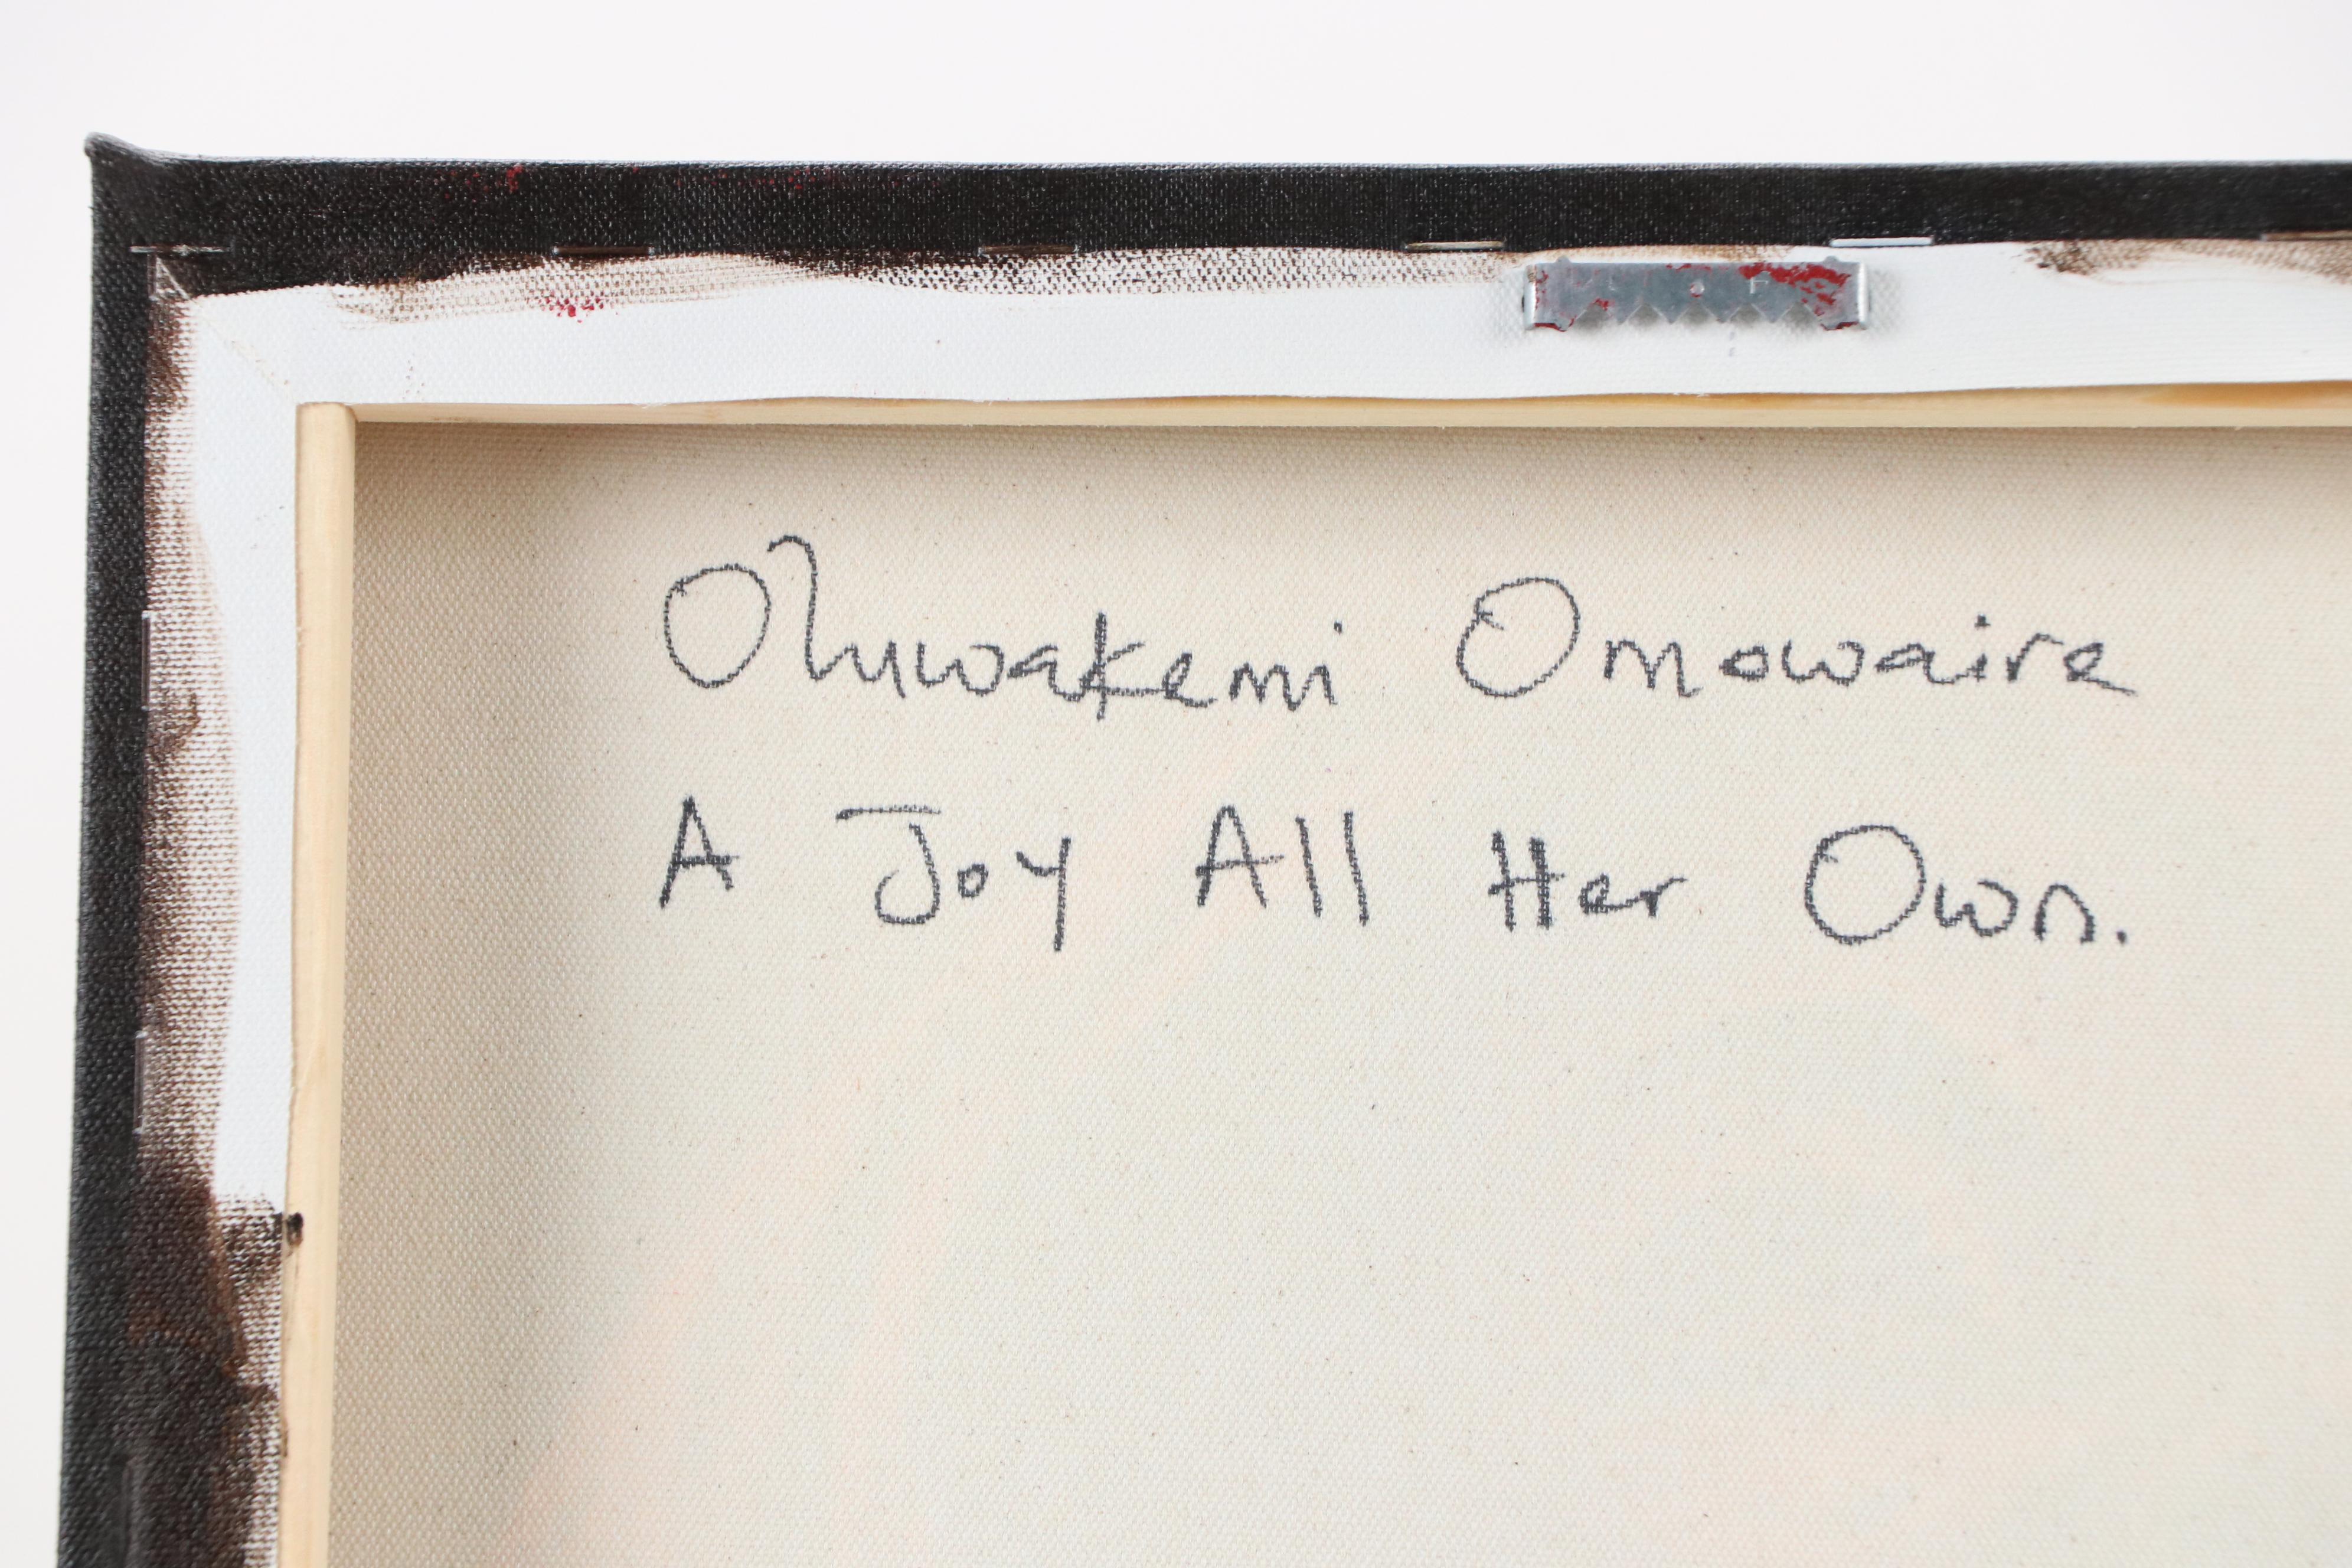 Oluwakemi Omowaire
A Joy All Her Own.